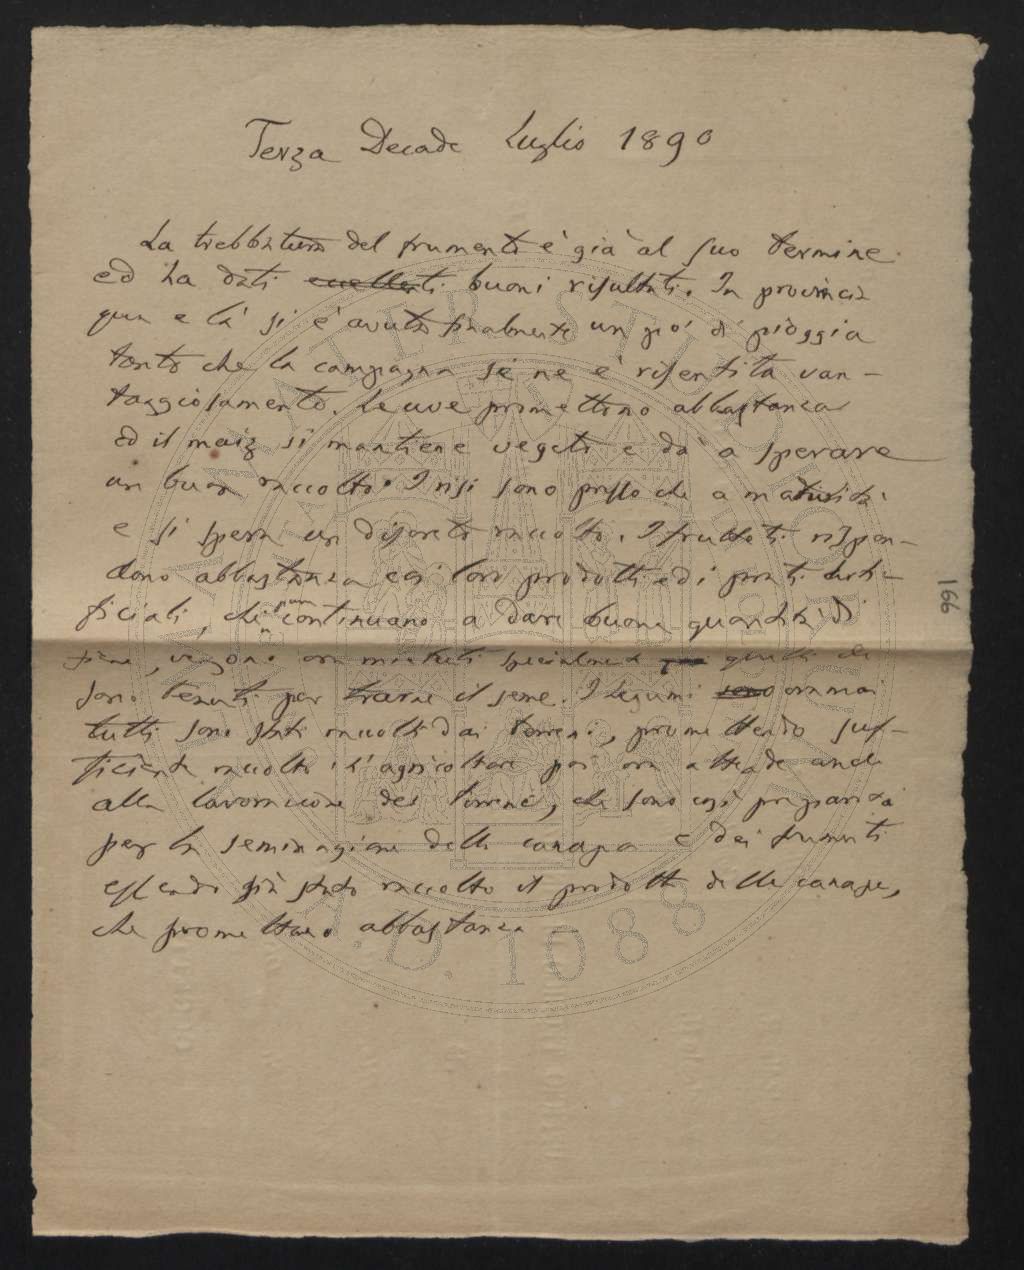 Terza Decade Luglio 1890
La trebbiatura del frumento è già al suo termine
ed ha dati eccellenti buoni risultati. In provincia
qua e là si è avuto finalmente un po' di pioggia
tanto che la campagna se ne è risentita van-
taggiosamento. Le uve promettono abbastanza
ed il maiz si mantiene vegeto e dà a sperare
un buon raccolto. I risi sono presso che a maturità
e si spera un discreto raccolto. I frutteti rispon-
dono abbastanza coi loro prodotti ed i prati arti-
ficiali, che pure continuano a dare buona quantità di
fieno, vengono ora mietuti specialmente quelli che
sono tenuti per trarne il seme. I legumi sono ormai
tutti sono stati raccolti dai terreni, promettendo suf-
ficiente raccolto. L'agricoltore poi ora attende anche
alla lavorazione dei terreni, che sono così preparati
per la seminagione della canapa e dei frumenti
essendo già stato raccolto il prodotto delle canape,
che promettono abbastanza
166
ALMA MATER STUDIORUM
A.D. 1088